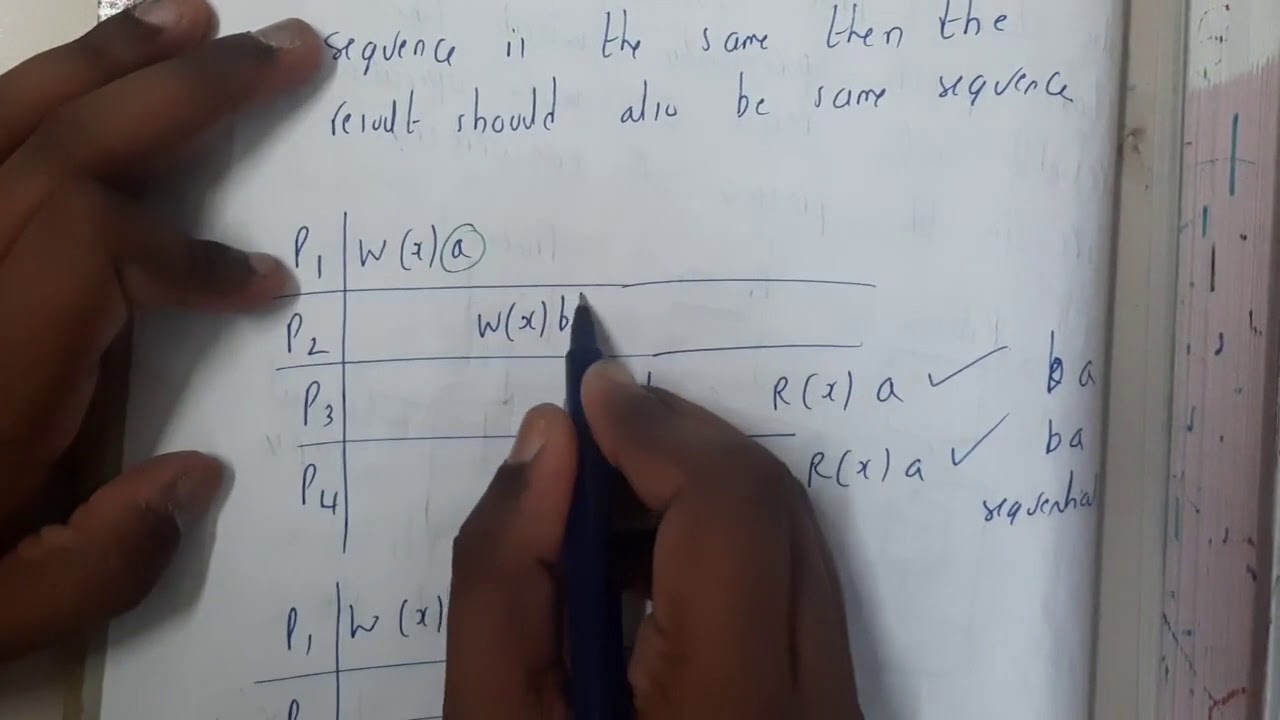 sequence is the same then the
result should also be same sequence
P1 W(x) a
P2 W(x) b
P3 R(x) a ✓ b a
P4 R(x) a ✓ b a
sequential
P1 W (x)